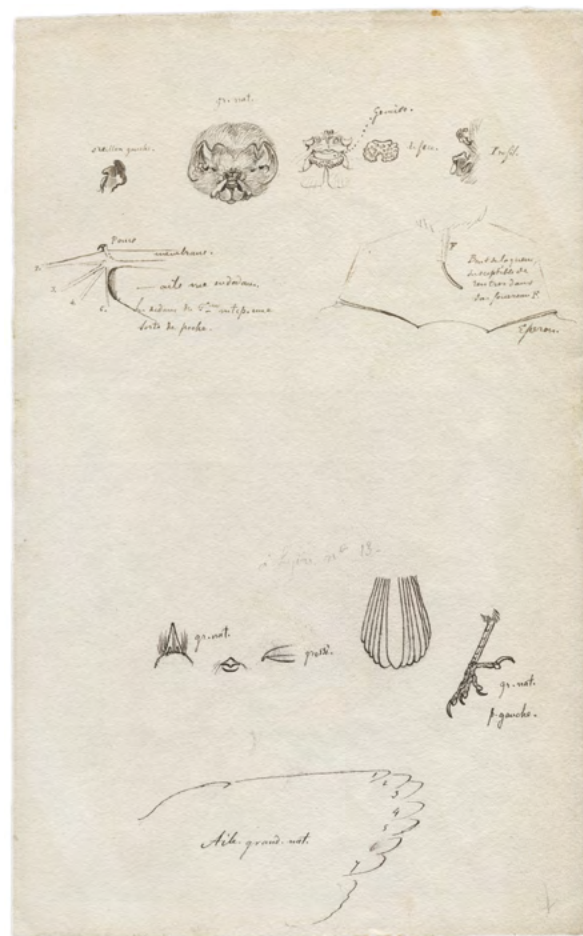 gr. nat.
Oreillon gauche.
Gencive.
Profil.
Pouce
membrane.
2.
3.
4.
5.
— aile vue en dedans.
Sorte de poche.
Bout de la queue
susceptible de
rentrer dans
Son fourreau P.
P
Eperon.
nº 13.
gr. nat.
grossi.
gr. nat.
p. gauche.
1
2
3
4
5
7
Aile. grand. nat.